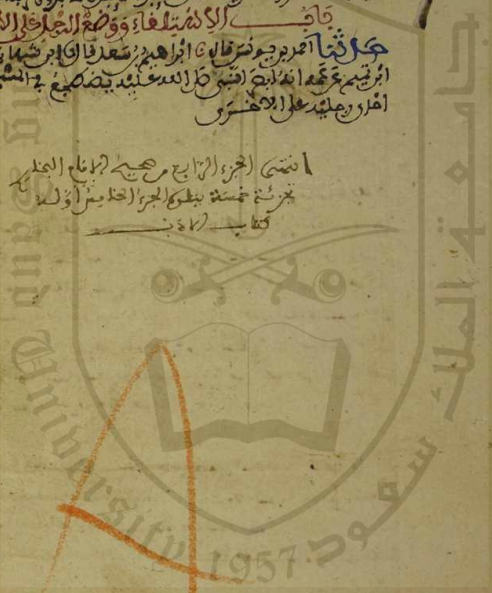 باب الاستلقاء ووضع الرجل على الا
حدثنا احمد بن يونس قال ابراهيم بن سعد قال ابن شهاب
ابن تميم عن عمه انه ابصر النبي صلى الله عليه يضطجع في المس
احدى رجليه على الاخرى
انتهى الجزء الرابع من صحيح الامام البخار
تجزئة خمسة يتلوه الجزء الخامس اوله
كتاب الادب
جامعة الملك سعود
King Saud University
1957